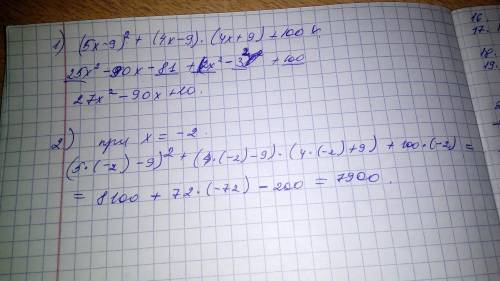 1) (5x-9)² + (4x-9)·(4x+9) + 100
25x² - 90x - 81 + x² - 3 + 100
27x² - 90x + 20.
2) при x = -2.
(5·(-2)-9)² + (4·(-2)-9)·(4·(-2)+9) + 100·(-2) =
= 8100 + 72·(-72) - 200 = 7900.
16.
17.
18.
19.